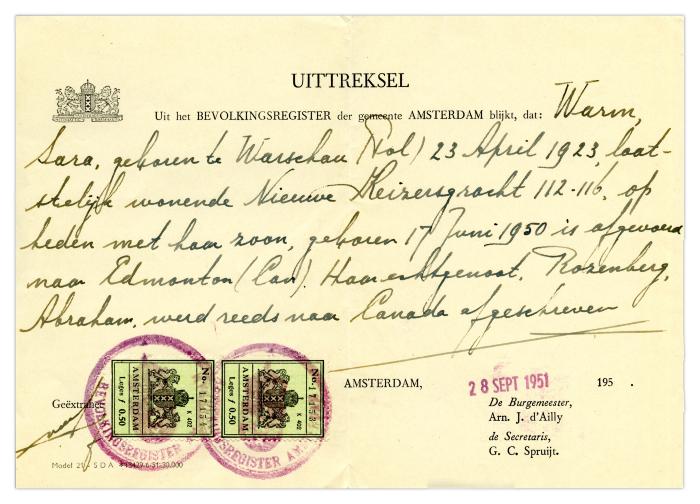 UITTREKSEL
Uit het BEVOLKINGSREGISTER der gemeente AMSTERDAM blijkt, dat: Warm,
Sara, geboren te Warschau (Pol) 23 April 1923, laat-
stelijk wonende Nieuwe Keizersgracht 112-116, op
heden met haar zoon, geboren 17 Juni 1950 is afgevoerd
naar Edmonton (Can). Haar echtgenoot, Rozenberg,
Abraham, werd reeds naar Canada afgeschreven
AMSTERDAM, 28 SEPT 1951 195 .
Geëxtraheerd
De Burgemeester,
Arn. J. d'Ailly
de Secretaris,
G. C. Spruijt.
No.
AMSTERDAM
Leges f 0.50
K 402
No.
AMSTERDAM
Leges f 0.50
K 402
BEVOLKINGSREGISTER
BEVOLKINGSREGISTER
Model 21 - S D A